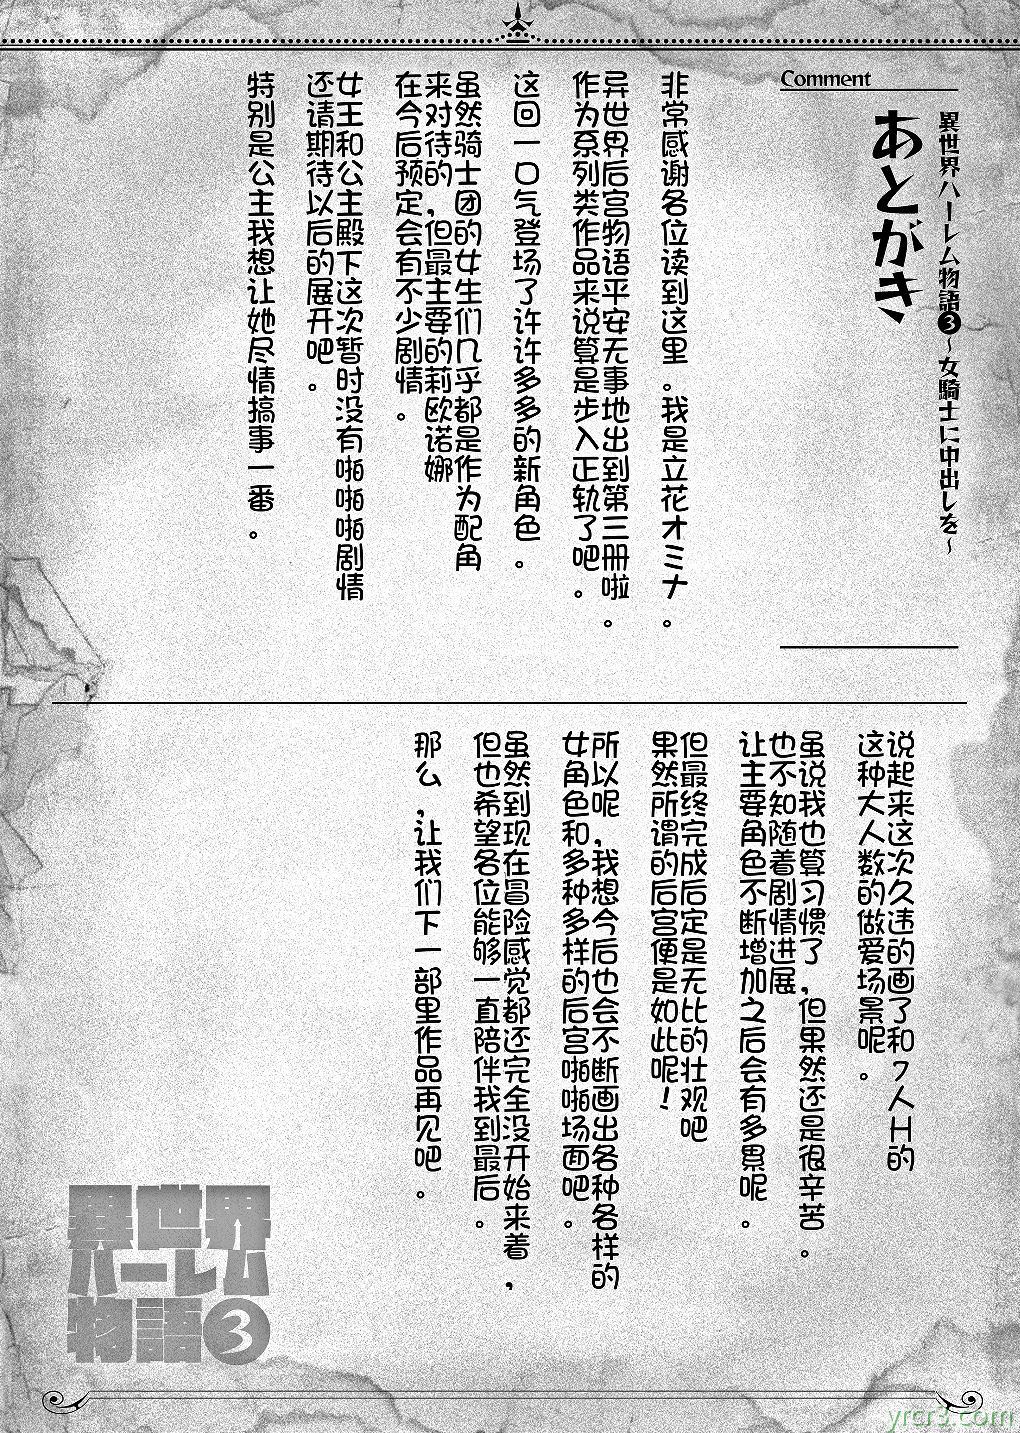 Comment
異世界ハーレム物語❸～女騎士に中出しを～
あとがき
非常感谢各位读到这里。我是立花オミナ。
异世界后宫物语平安无事地出到第三册啦。
作为系列类作品来说算是步入正轨了吧。
这回一口气登场了许许多多的新角色。
虽然骑士团的女生们几乎都是作为配角
来对待的，但最主要的莉欧诺娜
在今后预定会有不少剧情。
女王和公主殿下这次暂时没有啪啪啪剧情
还请期待以后的展开吧。
特别是公主我想让她尽情搞事一番。
说起来这次久违的画了和7人H的
这种大人数的做爱场景呢。
虽说我也算习惯了，但果然还是很辛苦。
也不知随着剧情进展
让主要角色不断增加之后会有多累呢。
但最终完成后定是无比的壮观吧
果然所谓的后宫便是如此呢！
所以呢，我想今后也会不断画出各种各样的
女角色和多种多样的后宫啪啪场面吧。
虽然到现在冒险感觉都还完全没开始来着，
但也希望各位能够一直陪伴我到最后。
那么，让我们下一部里作品再见吧。
異世界
ハーレム
物語❸
yrcr3.com